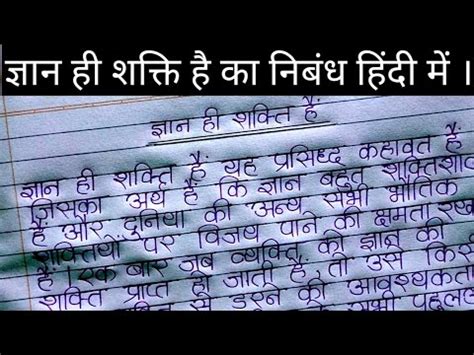 ज्ञान ही शक्ति है का निबंध हिंदी में ।
ज्ञान ही शक्ति हैं
ज्ञान ही शक्ति हैं यह प्रसिध्द कहावत हैं
जिसका अर्थ हैं कि ज्ञान बहुत शक्तिशा
हैं और दुनिया की अन्य सभी भौतिक
शक्तियों पर विजय पाने की क्षमता रख
हैं । एक बार जब व्यक्ति को ज्ञान की
शक्ति प्राप्त हो जाती हैं, तो उसे किस
से डरने की आवश्यकता